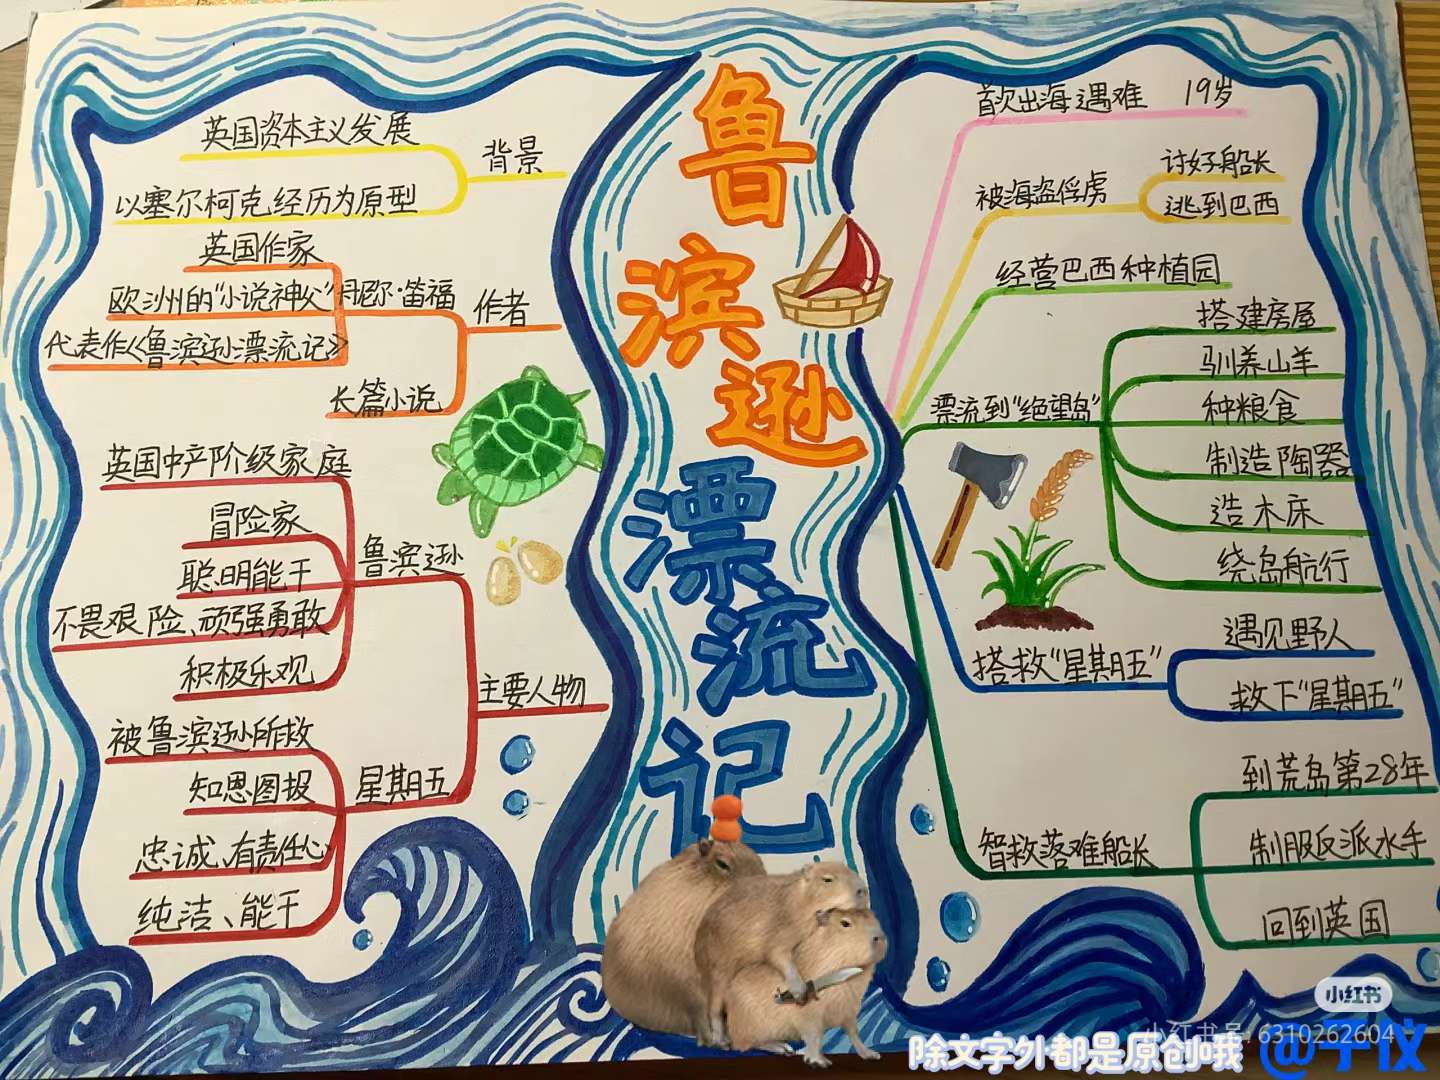 鲁滨逊漂流记
背景
英国资本主义发展
以塞尔柯克经历为原型
作者
英国作家
欧洲州的“小说神父”丹尼尔·笛福
代表作《鲁滨逊漂流记》
长篇小说
主要人物
鲁滨逊
英国中产阶级家庭
冒险家
聪明能干
不畏艰险、顽强勇敢
积极乐观
星期五
被鲁滨逊所救
知恩图报
忠诚、有责任心
纯洁、能干
首次出海遇难 19岁
被海盗俘虏
讨好船长
逃到巴西
经营巴西种植园
漂流到“绝望岛”
搭建房屋
驯养山羊
种粮食
制造陶器
造木床
绕岛航行
搭救“星期五”
遇见野人
救下“星期五”
智救落难船长
到荒岛第28年
制服反派水手
回到英国
小红书
小红书号:6310262604
除文字外都是原创哦 @子仪